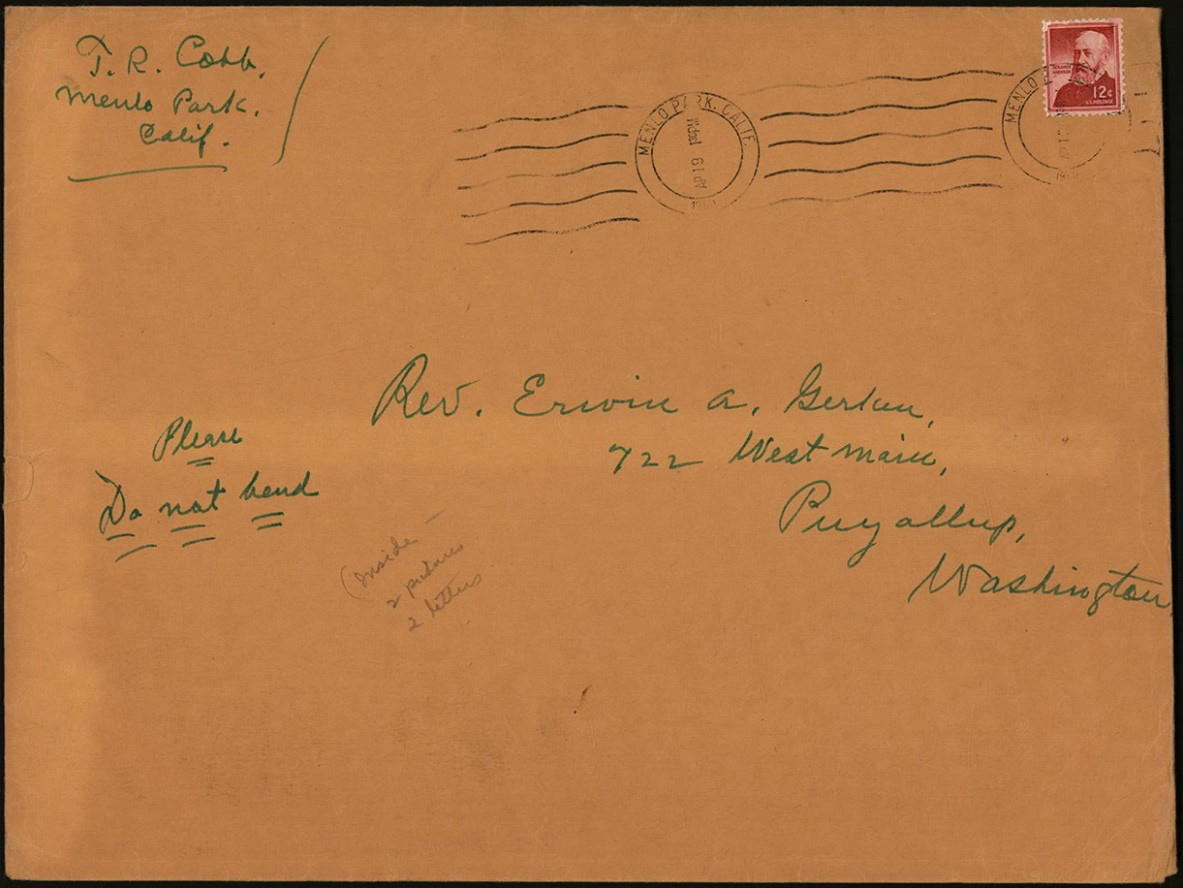 T. R. Cobb,
Menlo Park.
Calif.
MENLO PARK, CALIF
AP 19
MENLO
12¢
Rev. Erwin A. Gerken,
722 West Main,
Puyallup,
Washington,
Please
Do not bend
(Inside
2 pictures
2 letters